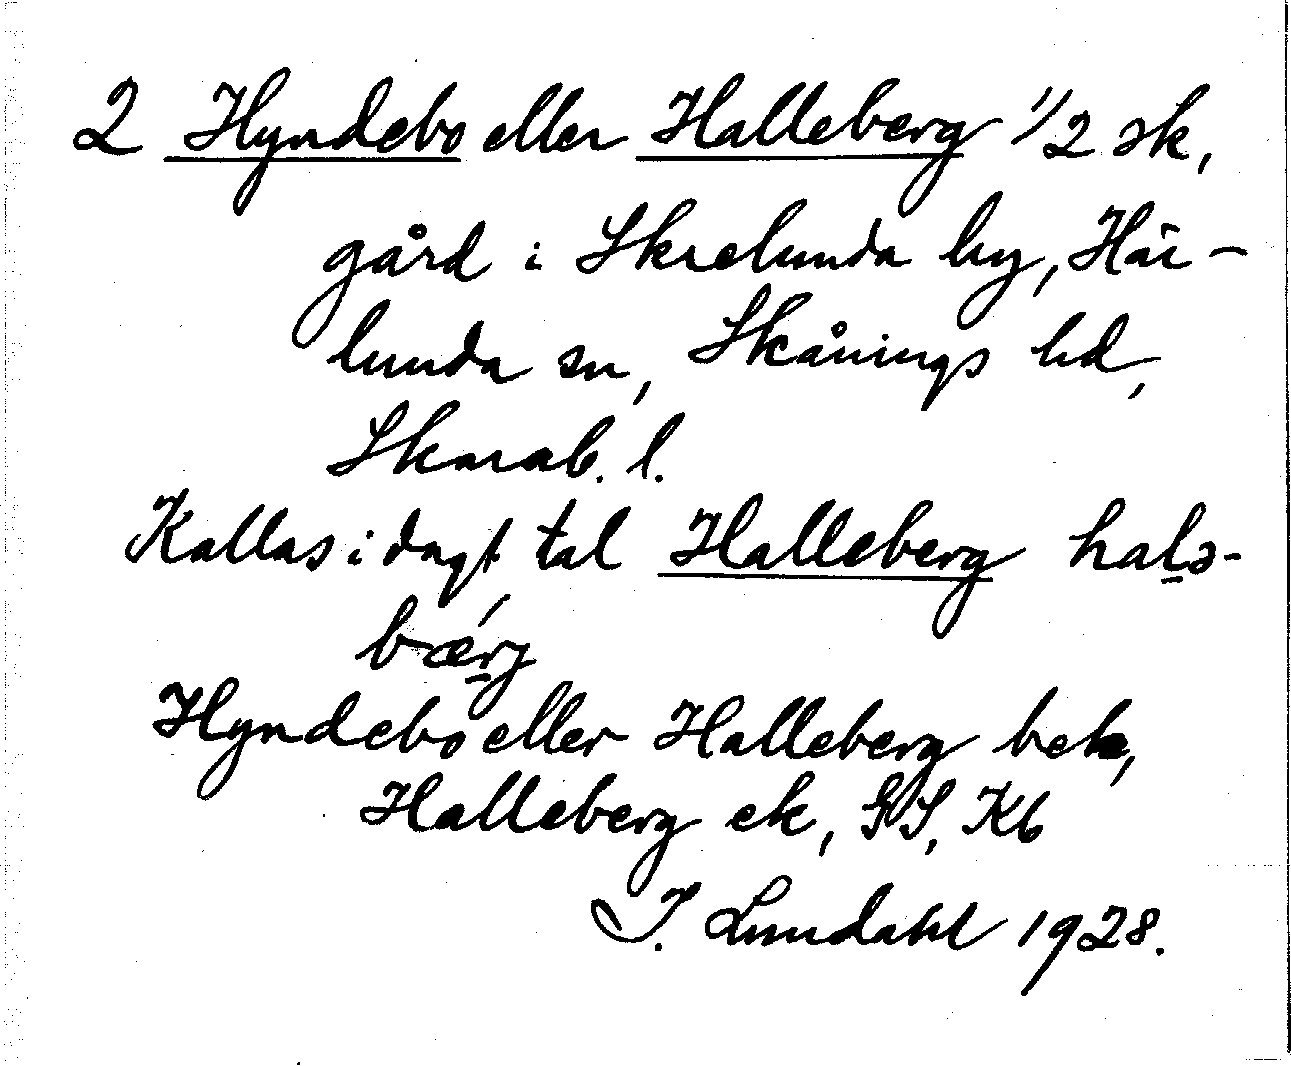 2 Hyndebo eller Halleberg 1/2 sk,
gård i Skrelunda by, Här-
lunda sn, Skånings hd,
Skarab. l.
Kallas i dagt tal Halleberg halə-
bærj
Hyndebo eller Halleberg bek,
Halleberg ek, GS, Kb
I. Lundahl 1928.